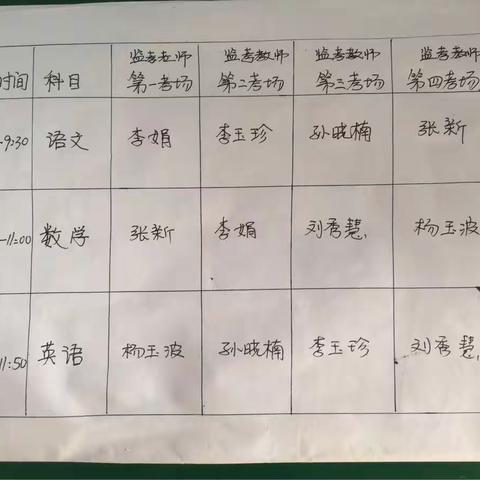 监考老师 监考教师 监考教师 监考老师
时间 科目 第一考场 第二考场 第三考场 第四考场
-9:30 语文 李娟 李玉珍 孙晓楠 张新
-11:00 数学 张新 李娟 刘秀慧 杨玉波
11:50 英语 杨玉波 孙晓楠 李玉珍 刘秀慧